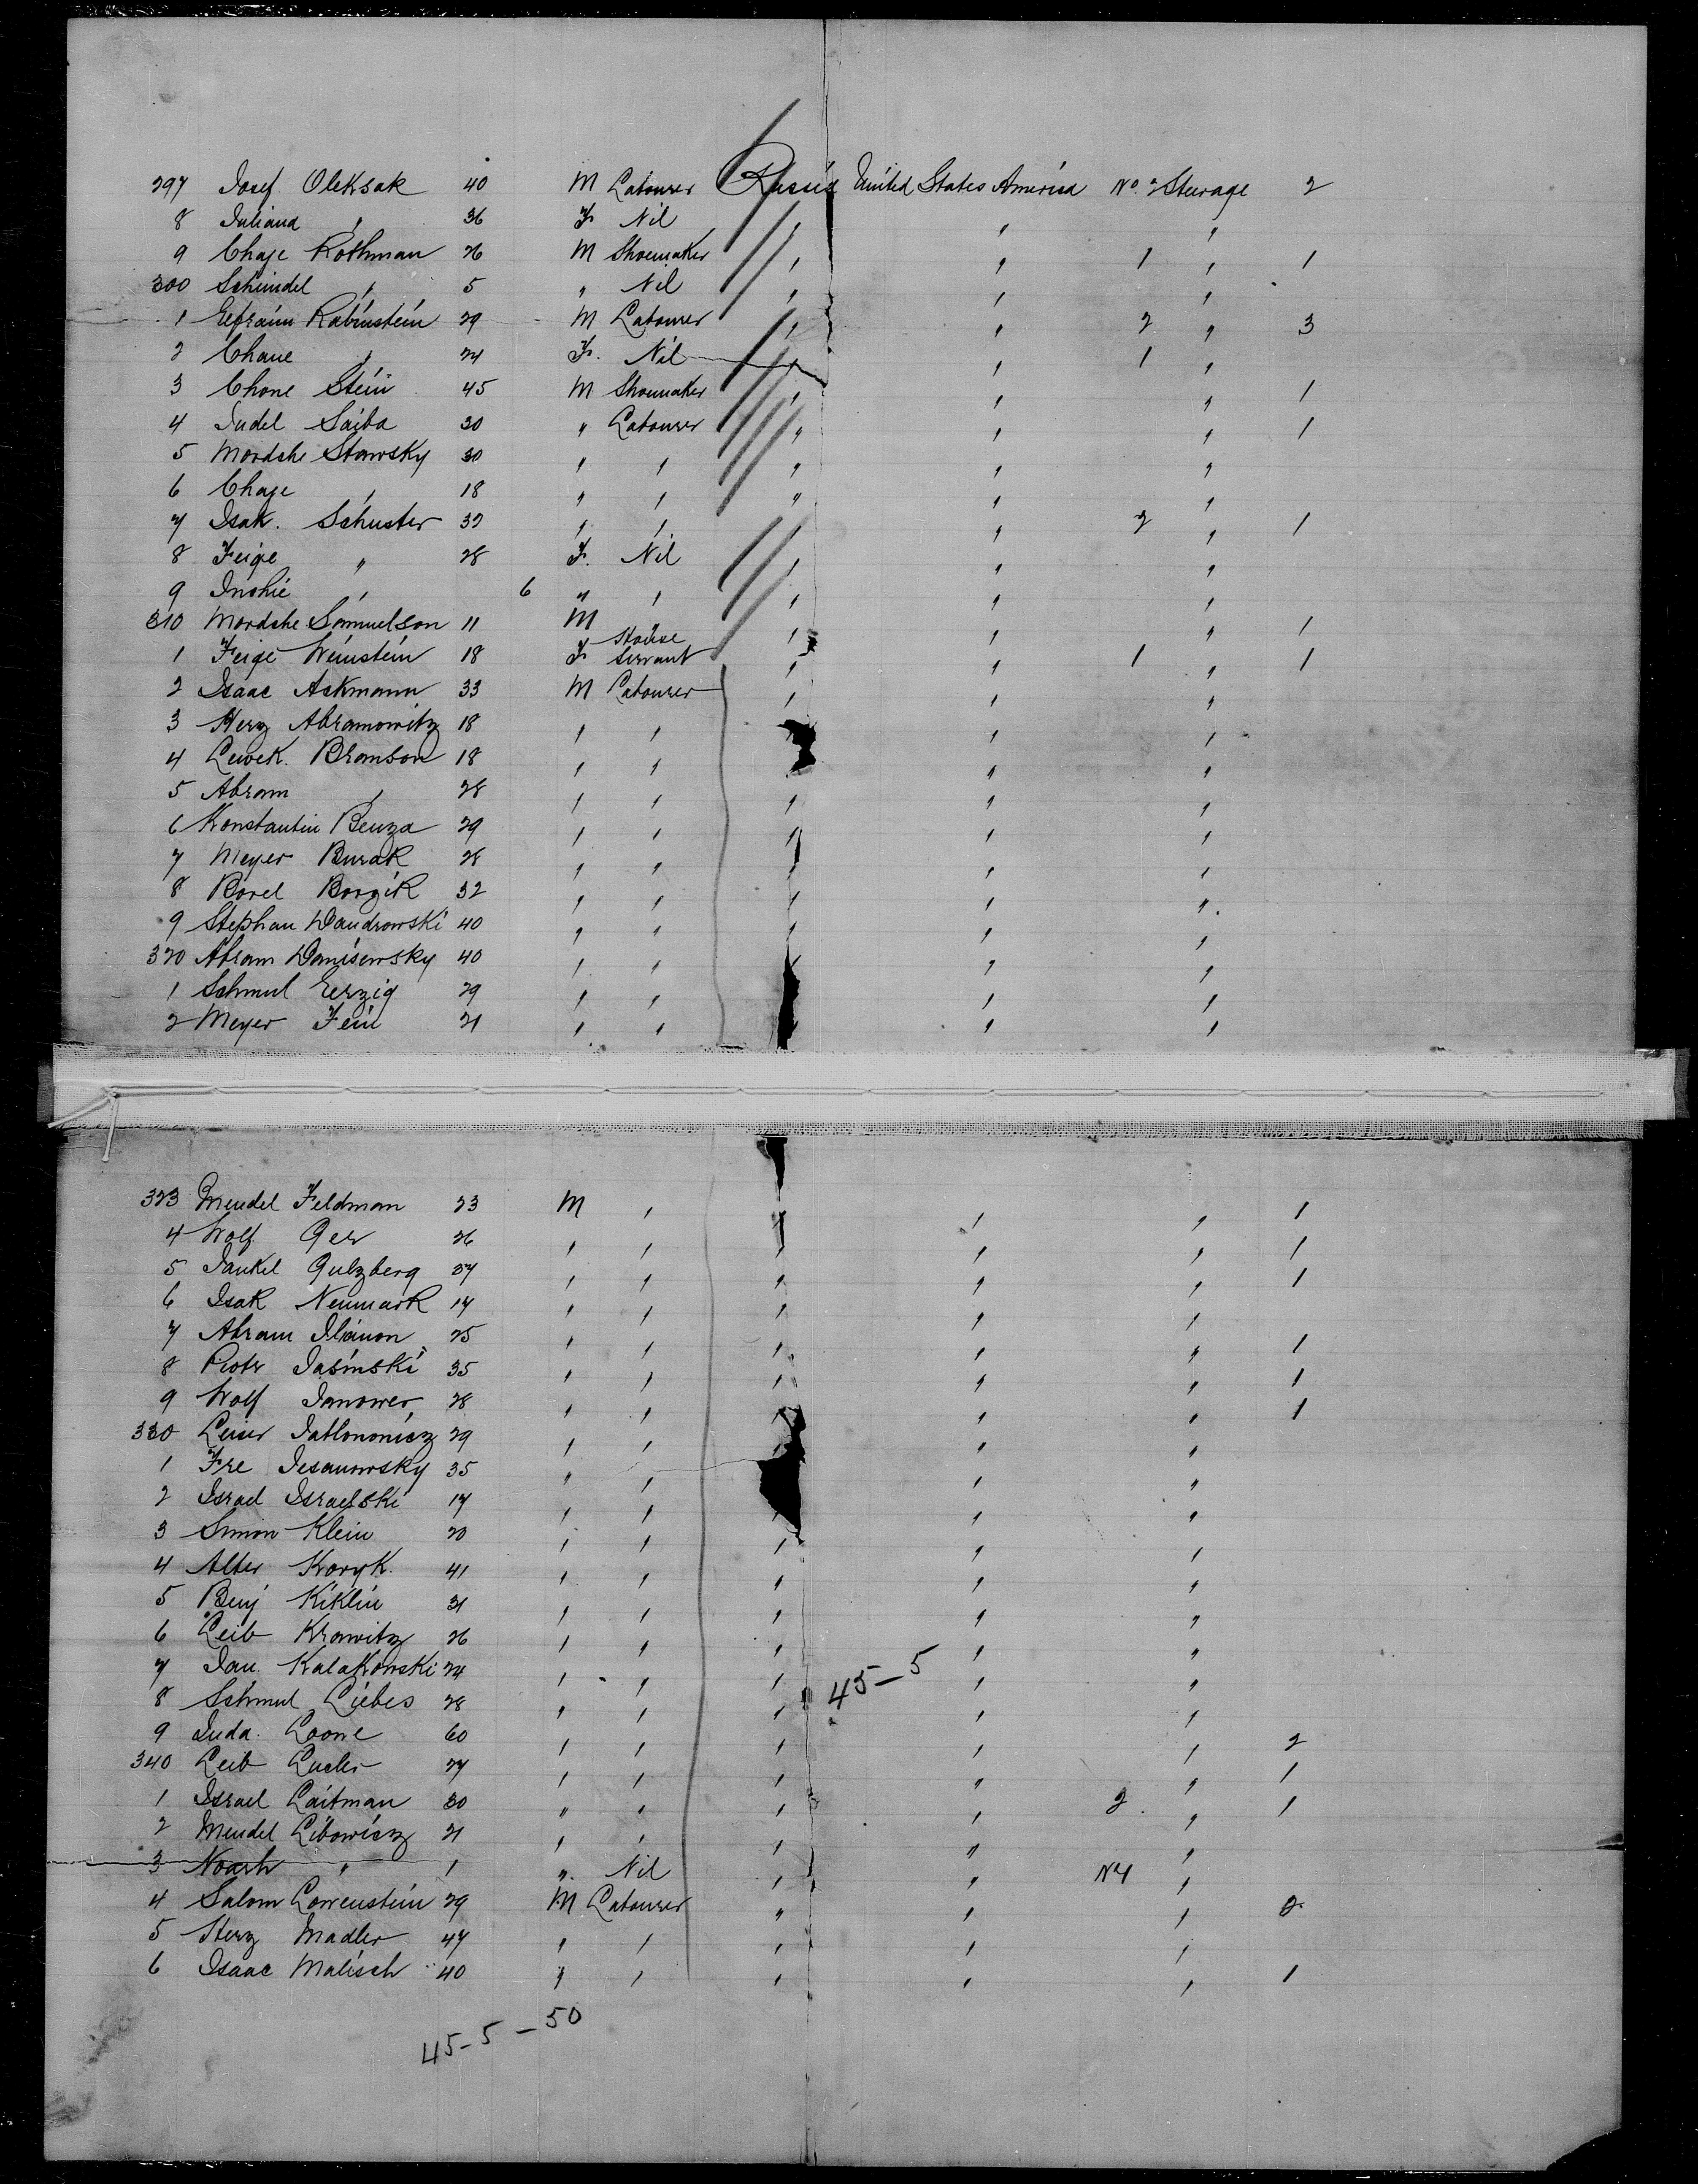 297 Josef Oleksak 40 M Labourer Russia United States America No. 2 Steerage 2
8 Juliana " 36 F Nil " " "
9 Chaje Rothman 26 M Shoemaker " " 1 " 1
300 Scheindel " 5 " Nil " " "
1 Eefraim Rabinstein 29 M Labourer " " 2 " 3
2 Chane " 24 F. Nil " " 1 "
3 Chone Stein 45 M Shoemaker " " " 1
4 Judel Saiba 30 " Labourer " " " 1
5 Mordshe Stawsky 30 " " " " "
6 Chaje " 18 " " " " "
7 Isak. Schuster 32 " " " 2 " 1
8 Feige " 28 F. Nil " " "
9 " 6 " " " " "
310 Mordshe Samuelson 11 M " " " " 1
1 Feige Weinstein 18 F House Servant " " 1 " 1
2 Isaac Ackmann 33 M Labourer " " "
3 Herz Abramowitz 18 " " " "
4 Lewek. Bramson 18 " " " "
5 Abram " 28 " " " " "
6 Konstantin Benza 29 " " " " "
7 Meyer Burak 28 " " " " "
8 Borel Borgik 32 " " " " "
9 Stephan Dandrowski 40 " " " " "
320 Abram Danisewsky 40 " " " " "
1 Schmul Eerzig 29 " " " "
2 Meyer Fein 21 " " " "
323 Mendel Feldman 23 M " " " " 1
4 Wolf Ger 26 " " " " " 1
5 Jankel Gulzberg 37 " " " " " 1
6 Isak Neumark 17 " " " " "
7 Abram 25 " " " " " 1
8 Piotr Jasinski 35 " " " " " 1
9 Wolf Janower 28 " " " " " 1
330 Leiser Jablonowicz 29 " " " " "
1 Fre Jesanowsky 35 " " " "
2 Israel Israelski 17 " " " " "
3 Simon Klein 20 " " " " "
4 Alter Koryk. 41 " " " " "
5 Benj Kiklin 31 " " " " "
6 Leib Krawitz 26 " " " " "
7 Jan. Kalakowski 24 " " " " "
45-5
8 Schmul Liebes 28 " " " " "
9 Juda. Loone 60 " " " " " 2
340 Leib Lueler 27 " " " " " 1
1 Israel Laitman 30 " " " " 2. " 1
2 Mendel Libowicz 21 " " " " "
3 Noach " 1 " Nil " " N4 "
4 Salom Lowenstein 29 M Labourer " " " 2
5 Herz Madler 47 " " " " "
6 Isaac Malisch 40 " " " " " 1
45-5-50